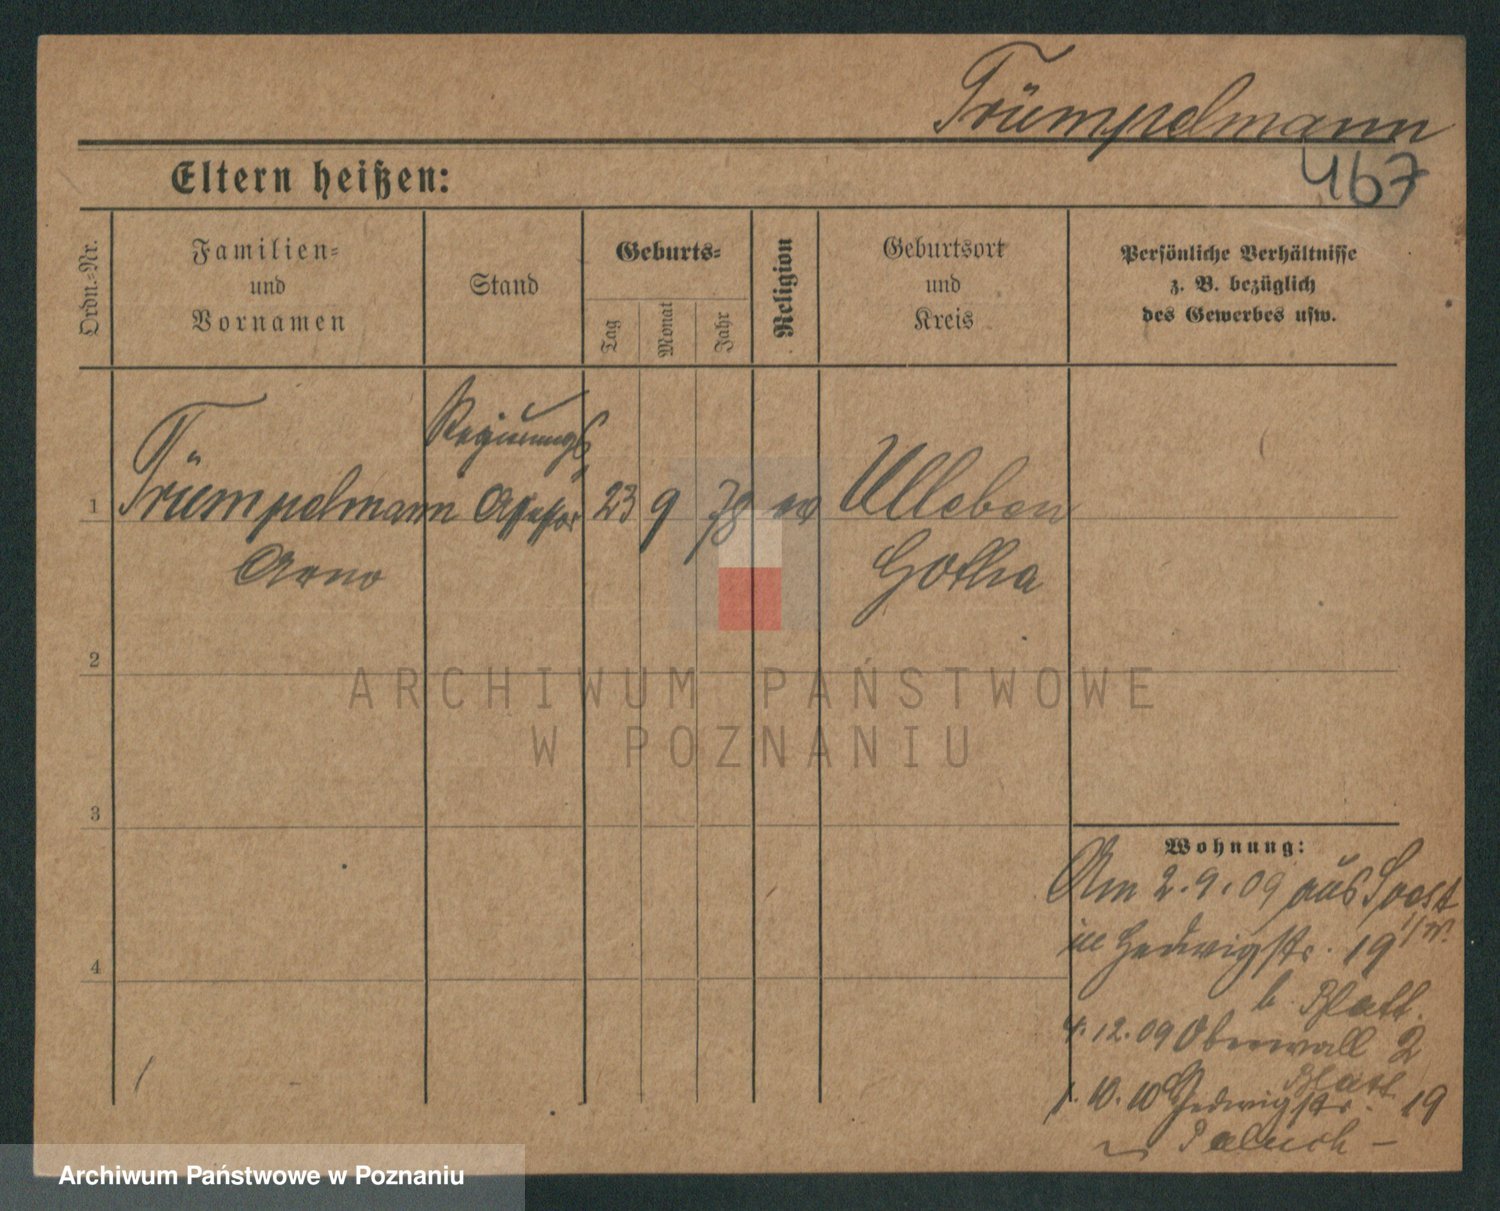 Trümpelmann
467
Eltern heißen:
Ordn.-Nr.
Familien-
und
Vornamen
Stand
Geburts-
Tag
Monat
Jahr
Religion
Geburtsort
und
Kreis
Persönliche Verhältnisse
z. B. bezüglich
des Gewerbes usw.
Regierungs
1 Trümpelmann Assessor 23 9 78 ev Ulleben
Arno Gotha
2
3
4
ARCHIWUM PAŃSTWOWE
W POZNANIU
Wohnung:
Am 2.9.09 aus Soest
in Hedwigstr. 19
b. Blatt.
4.12.09 Oberwall 2
Blatt
1.10.10 Hedwigstr. 19
Archiwum Państwowe w Poznaniu